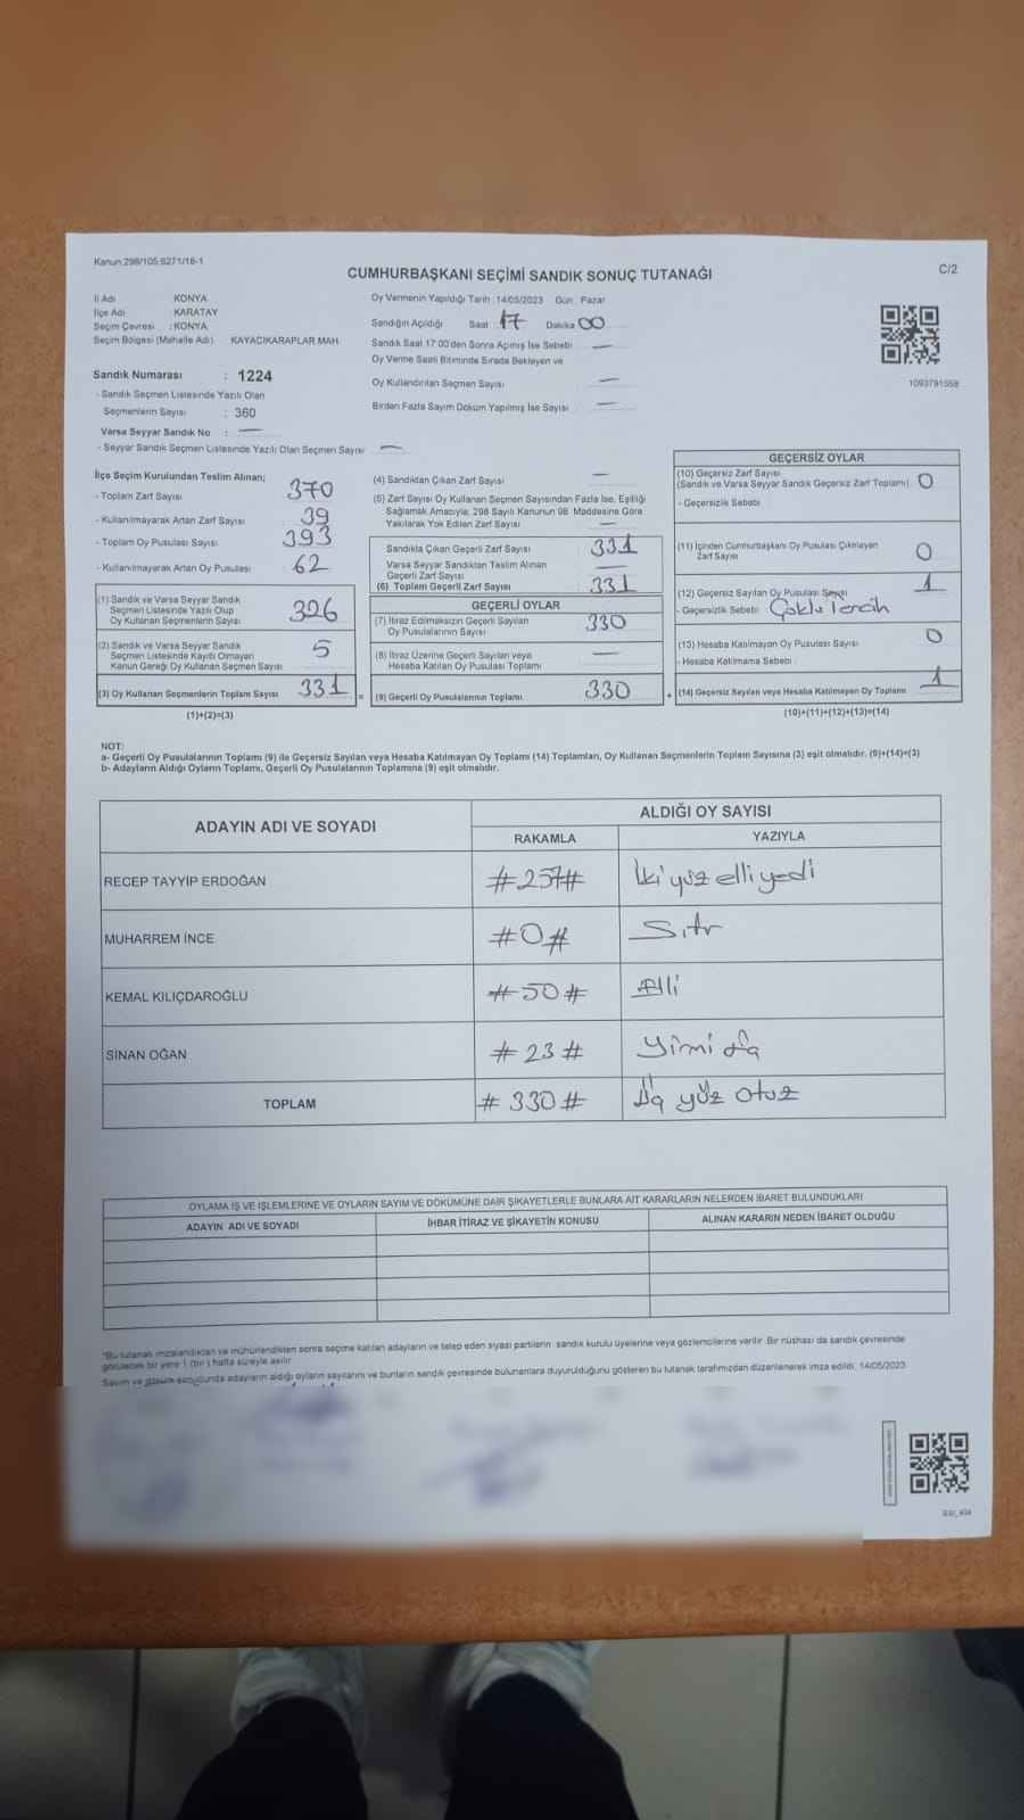 Kanun:298/105.6271/16-1
C/2
CUMHURBAŞKANI SEÇİMİ SANDIK SONUÇ TUTANAĞI
İl Adı KONYA
İlçe Adı KARATAY
Seçim Çevresi : KONYA
Seçim Bölgesi (Mahalle Adı) KAYACIKARAPLAR MAH.
Sandık Numarası : 1224
- Sandık Seçmen Listesinde Yazılı Olan
Seçmenlerin Sayısı : 360
Varsa Seyyar Sandık No : —
- Seyyar Sandık Seçmen Listesinde Yazılı Olan Seçmen Sayısı —
Oy Vermenin Yapıldığı Tarih : 14/05/2023 Gün : Pazar
Sandığın Açıldığı Saat 17 Dakika 00
Sandık Saat 17:00'den Sonra Açılmış İse Sebebi —
Oy Verme Saati Bitiminde Sırada Bekleyen ve
Oy Kullandırılan Seçmen Sayısı —
Birden Fazla Sayım Döküm Yapılmış İse Sayısı —
1093791558
İlçe Seçim Kurulundan Teslim Alınan;
- Toplam Zarf Sayısı 370
- Kullanılmayarak Artan Zarf Sayısı 39
- Toplam Oy Pusulası Sayısı 393
- Kullanılmayarak Artan Oy Pusulası 62
(1) Sandık ve Varsa Seyyar Sandık
Seçmen Listesinde Yazılı Olup
Oy Kullanan Seçmenlerin Sayısı 326
(2) Sandık ve Varsa Seyyar Sandık
Seçmen Listesinde Kayıtlı Olmayan
Kanun Gereği Oy Kullanan Seçmen Sayısı 5
(3) Oy Kullanan Seçmenlerin Toplam Sayısı 331 =
(1)+(2)=(3)
(4) Sandıktan Çıkan Zarf Sayısı —
(5) Zarf Sayısı Oy Kullanan Seçmen Sayısından Fazla İse, Eşitliği
Sağlamak Amacıyla, 298 Sayılı Kanunun 98. Maddesine Göre
Yakılarak Yok Edilen Zarf Sayısı —
Sandıkta Çıkan Geçerli Zarf Sayısı 331
Varsa Seyyar Sandıktan Teslim Alınan
Geçerli Zarf Sayısı —
(6) Toplam Geçerli Zarf Sayısı 331
GEÇERLİ OYLAR
(7) İtiraz Edilmeksizin Geçerli Sayılan
Oy Pusulalarının Sayısı 330
(8) İtiraz Üzerine Geçerli Sayılan veya
Hesaba Katılan Oy Pusulası Toplamı —
(9) Geçerli Oy Pusulalarının Toplamı 330 +
GEÇERSİZ OYLAR
(10) Geçersiz Zarf Sayısı
(Sandık ve Varsa Seyyar Sandık Geçersiz Zarf Toplamı) 0
- Geçersizlik Sebebi
(11) İçinden Cumhurbaşkanı Oy Pusulası Çıkmayan
Zarf Sayısı 0
(12) Geçersiz Sayılan Oy Pusulası Sayısı 1
- Geçersizlik Sebebi Çoklu Tercih
(13) Hesaba Katılmayan Oy Pusulası Sayısı 0
- Hesaba Katılmama Sebebi
(14) Geçersiz Sayılan veya Hesaba Katılmayan Oy Toplamı 1
(10)+(11)+(12)+(13)=(14)
NOT:
a- Geçerli Oy Pusulalarının Toplamı (9) ile Geçersiz Sayılan veya Hesaba Katılmayan Oy Toplamı (14) Toplamları, Oy Kullanan Seçmenlerin Toplam Sayısına (3) eşit olmalıdır. (9)+(14)=(3)
b- Adayların Aldığı Oyların Toplamı, Geçerli Oy Pusulalarının Toplamına (9) eşit olmalıdır.
ADAYIN ADI VE SOYADI
ALDIĞI OY SAYISI
RAKAMLA YAZIYLA
RECEP TAYYİP ERDOĞAN #257# İki yüz elli yedi
MUHARREM İNCE #0# Sıfır
KEMAL KILIÇDAROĞLU #50# Elli
SİNAN OĞAN #23# Yirmi üç
TOPLAM #330# Üç yüz otuz
OYLAMA İŞ VE İŞLEMLERİNE VE OYLARIN SAYIM VE DÖKÜMÜNE DAİR ŞİKAYETLERLE BUNLARA AİT KARARLARIN NELERDEN İBARET BULUNDUKLARI
ADAYIN ADI VE SOYADI İHBAR İTİRAZ VE ŞİKAYETİN KONUSU ALINAN KARARIN NEDEN İBARET OLDUĞU
"Bu tutanak imzalandıktan ve mühürlendikten sonra seçime katılan adayların ve talep eden siyasi partilerin sandık kurulu üyelerine veya gözlemcilerine verilir. Bir nüshası da sandık çevresinde
görülecek bir yere 1 (bir) hafta süreyle asılır.
Sayım ve döküm sonucunda adayların aldığı oyların sayılarını ve bunların sandık çevresinde bulunanlara duyurulduğunu gösteren bu tutanak tarafımızdan düzenlenerek imza edildi. 14/05/2023